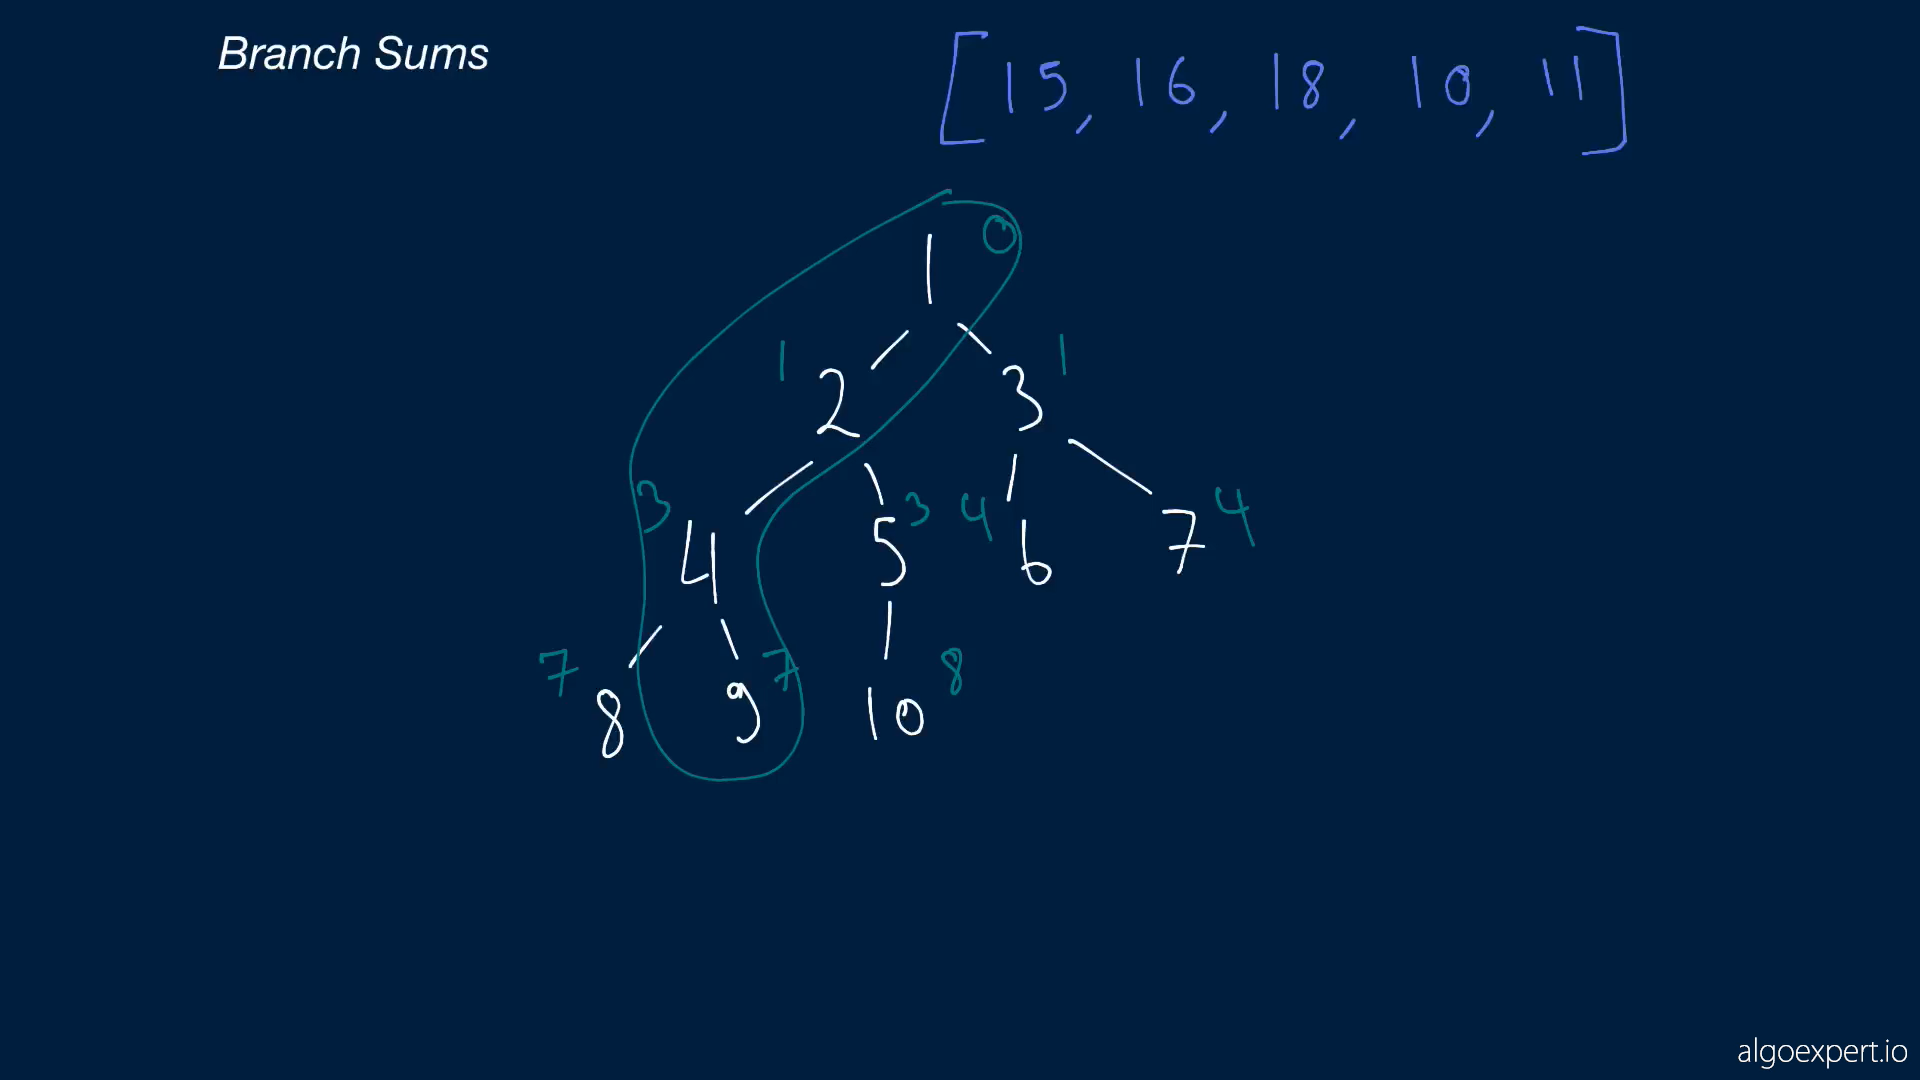 Branch Sums
[15, 16, 18, 10, 11]
0
1
1 2 3 1
3 4 5 3 4 6 7 4
7 8 9 7 10 8
algoexpert.io